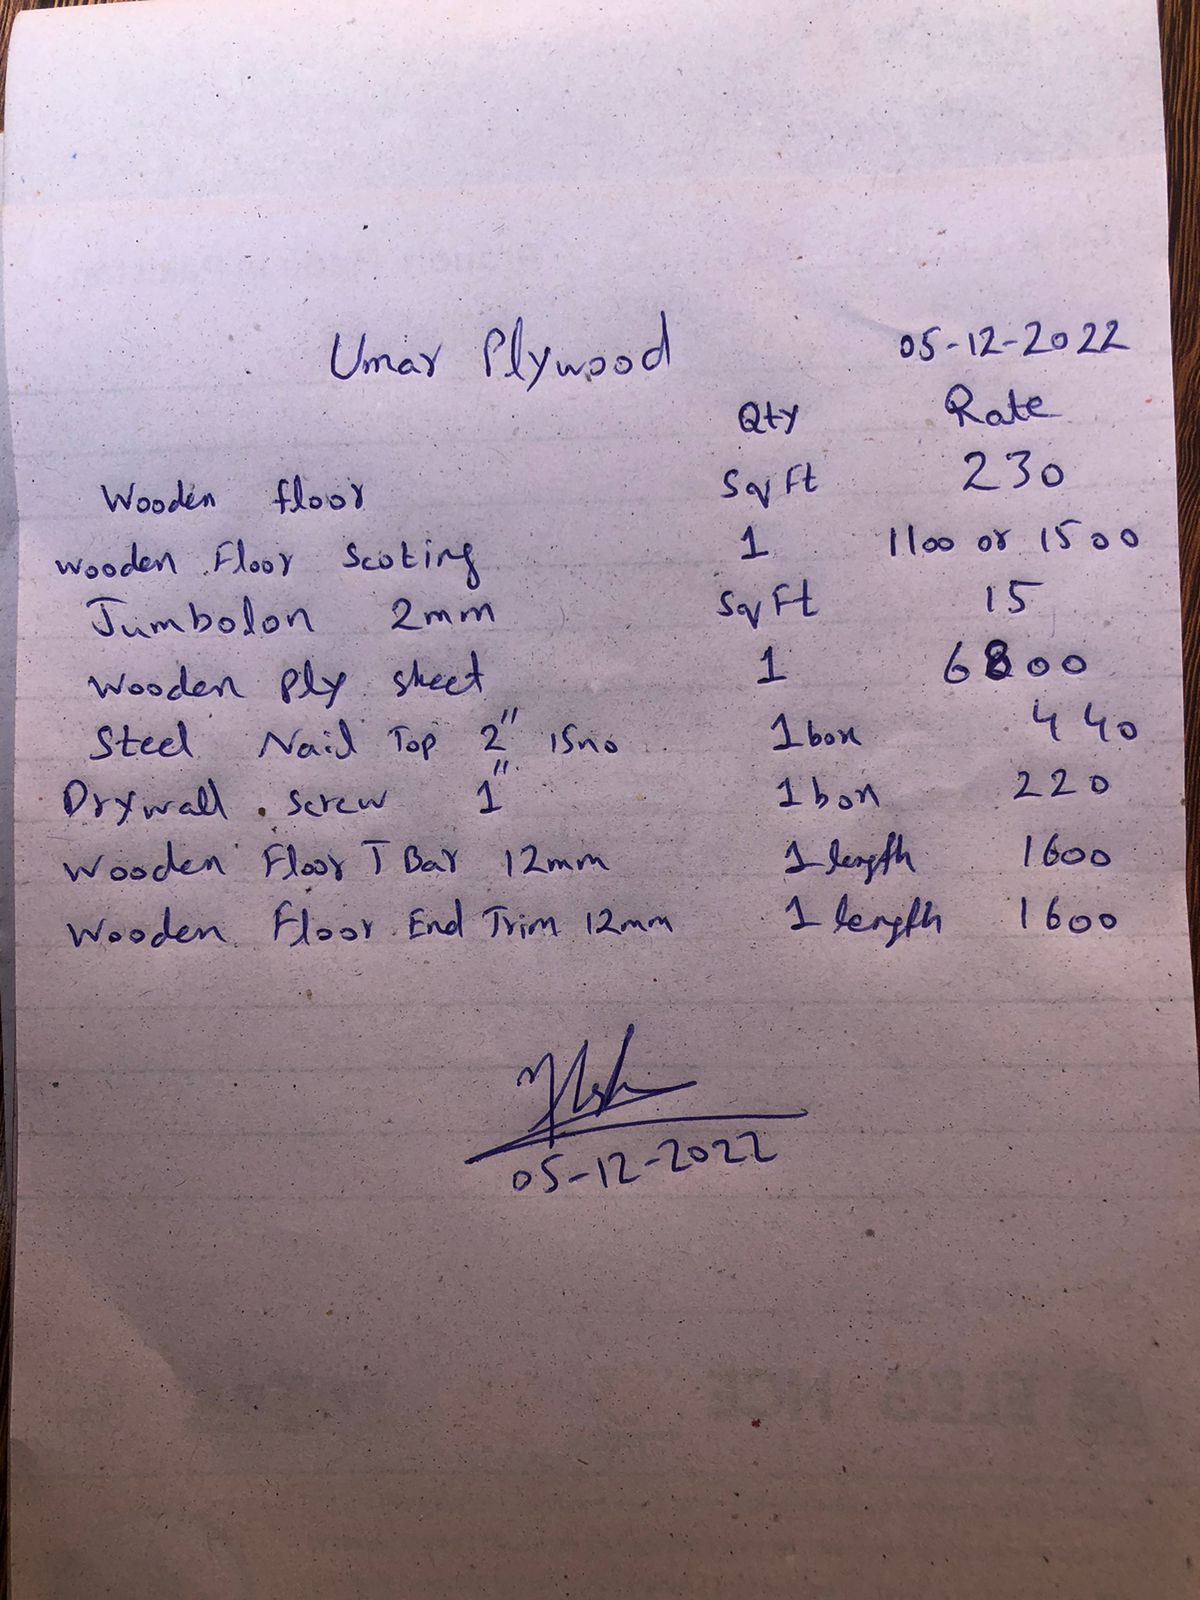 Umar Plywood 05-12-2022
Qty Rate
Wooden floor Sq Ft 230
Wooden Floor Scoting 1 1100 or 1500
Jumbolon 2mm Sq Ft 15
Wooden Ply sheet 1 6800
Steel Nail Top 2" 15no 1 box 440
Drywall screw 1" 1 box 220
Wooden Floor T Bar 12mm 1 length 1600
Wooden Floor End Trim 12mm 1 length 1600
05-12-2022